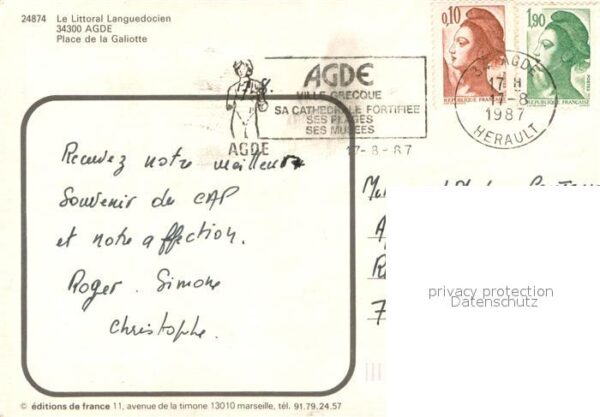 24874 Le Littoral Languedocien
34300 AGDE
Place de la Galiotte
0,10
REPUBLIQUE FRANÇAISE
1,90
REPUBLIQUE FRANÇAISE
AGDE
VILLE GRECQUE
SA CATHEDRALE FORTIFIEE
SES PLAGES
SES MUSEES
AGDE
17-8-87
34 AGDE
17 H
17-8
1987
HERAULT
Recevez notre meilleur
Souvenir du CAP
et notre affection.
Roger. Simone
Christophe.
privacy protection
Datenschutz
© éditions de france 11, avenue de la timone 13010 marseille, tél. 91.79.24.57